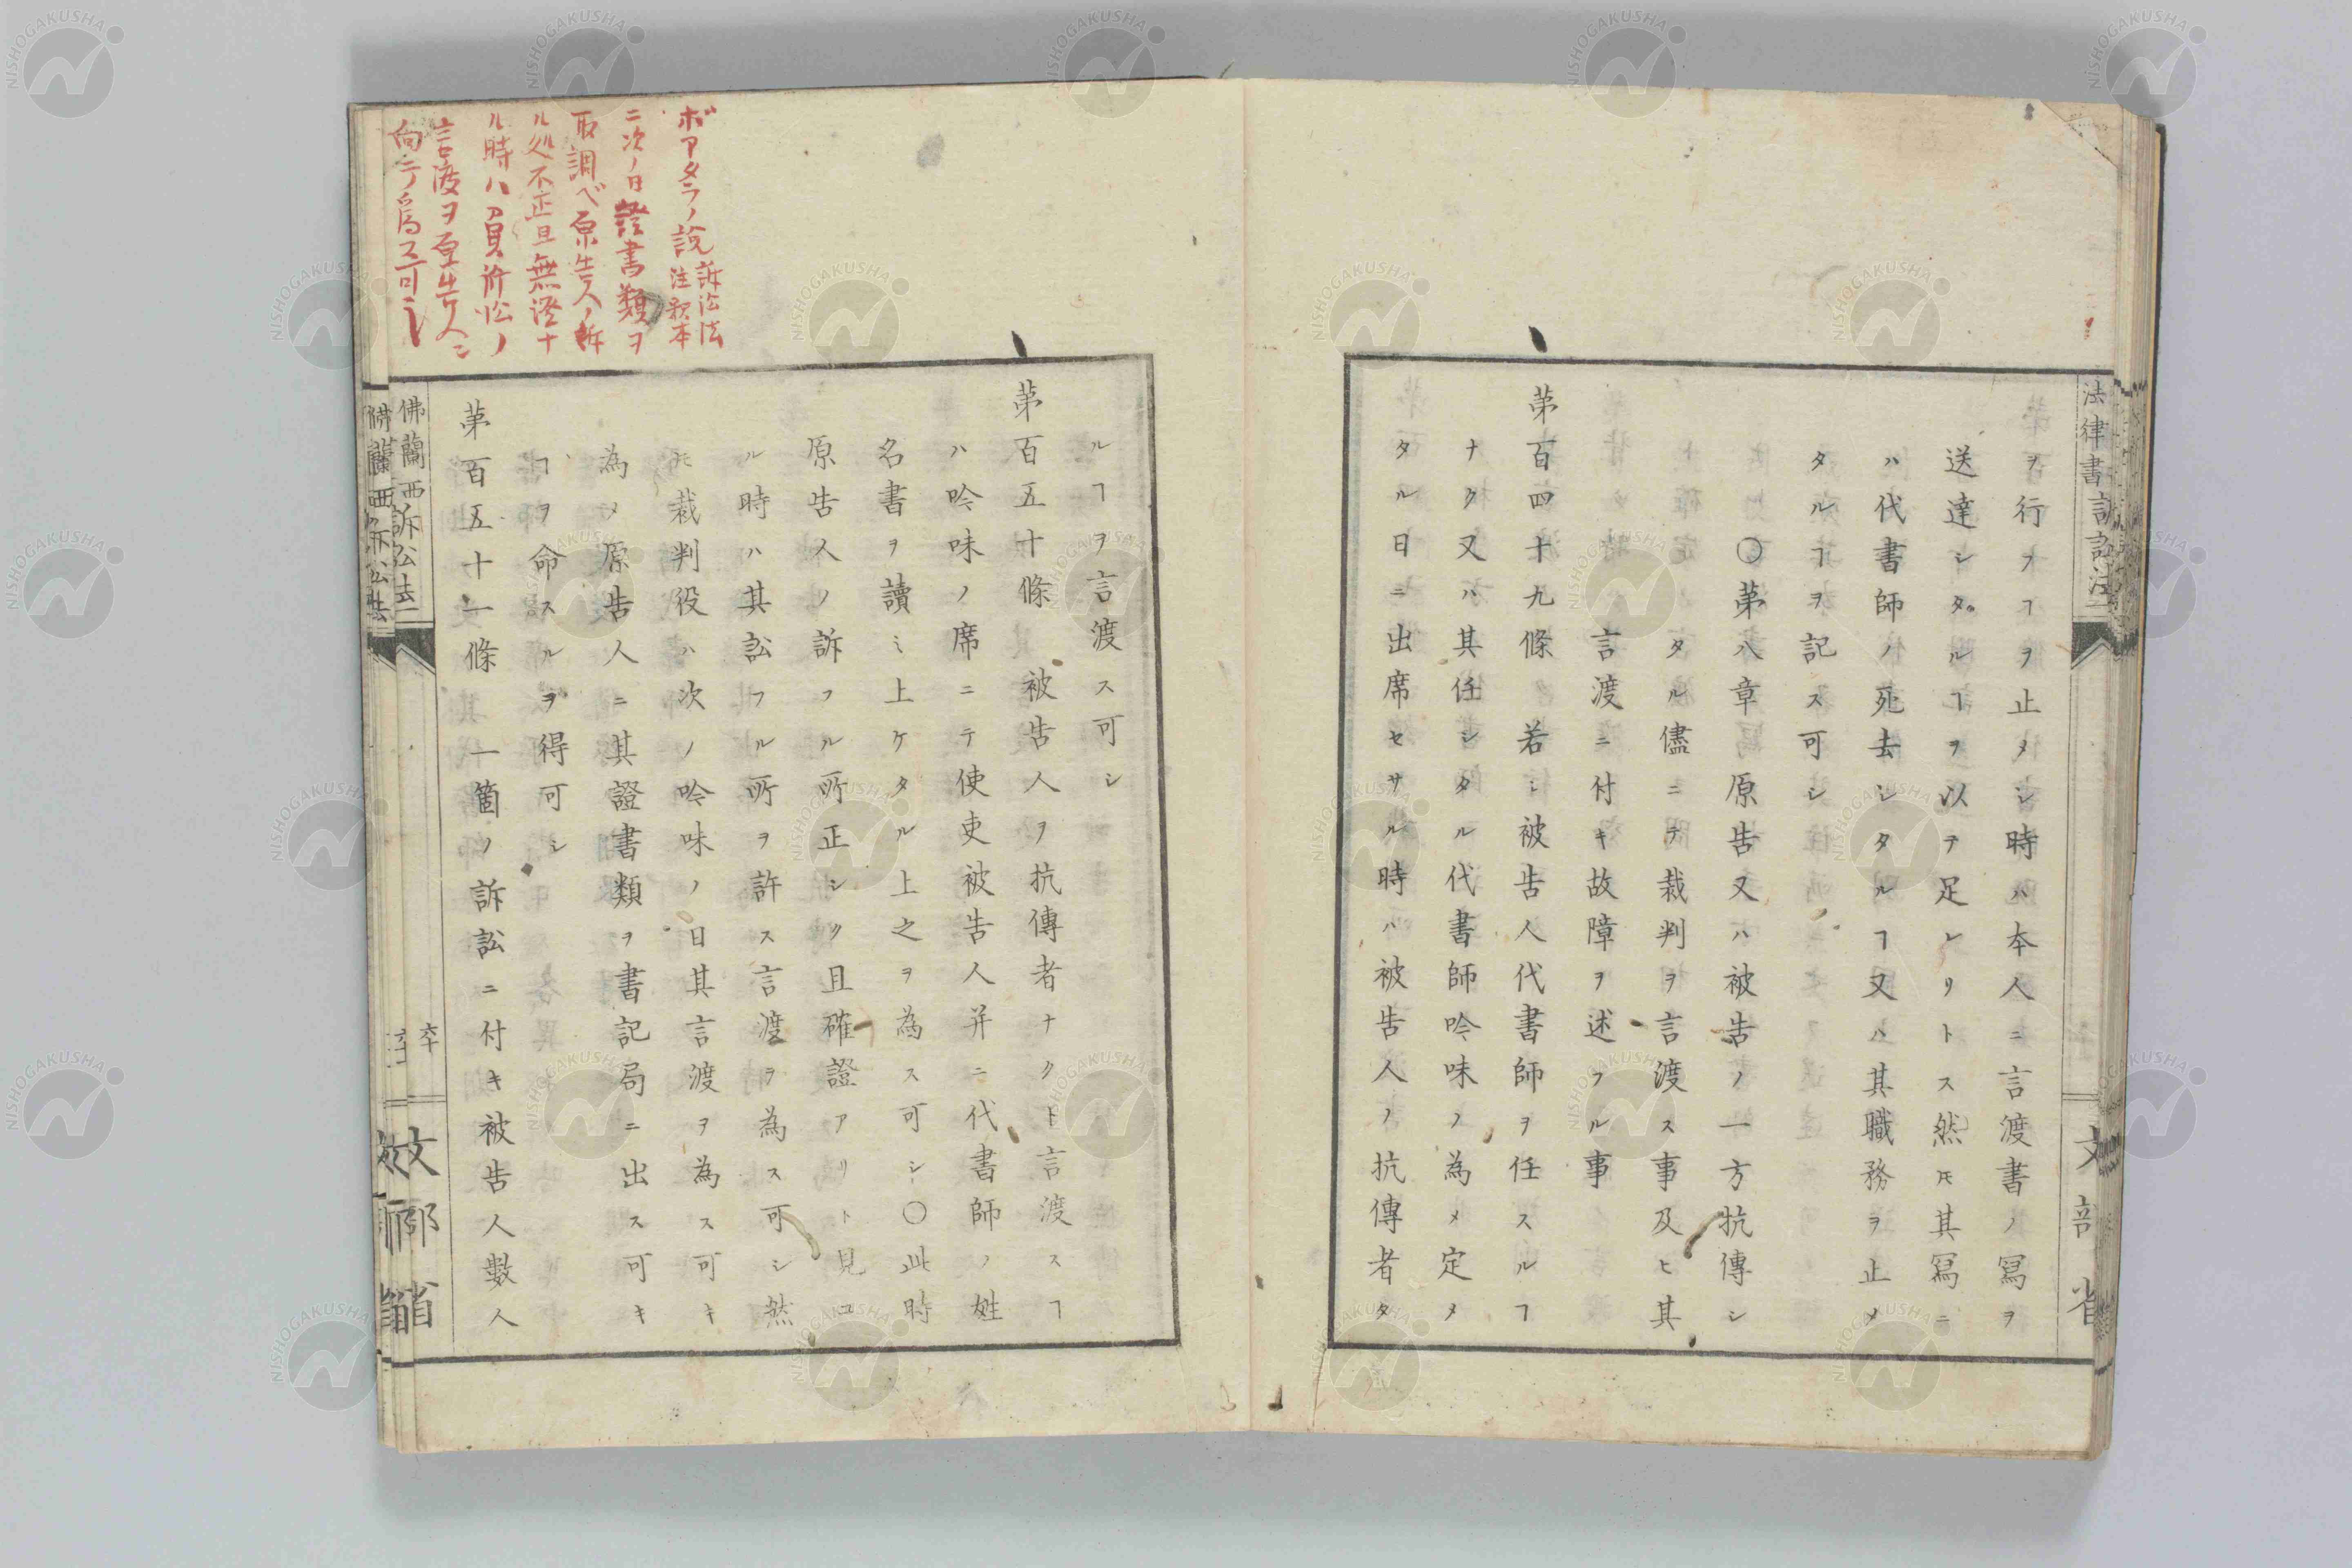 ヲ行フヿヲ止メシ時ハ本人ニ言渡書ノ寫ヲ
送達シタルヿヲ以テ足レリトス然𪜈其寫ニ
ハ代書師ノ死去シタルヿ又ハ其職務ヲ止メ
タルヿヲ記ス可シ
〇第八章 原告又ハ被告ノ一方抗傳シ
タル儘ニテ裁判ヲ言渡ス事及ヒ其
言渡ニ付キ故障ヲ述フル事
第百四十九條 若シ被告人代書師ヲ任スルヿ
ナク又ハ其任シタル代書師吟味ノ為メ定メ
タル日ニ出席セサル時ハ被告人ノ抗傳者タ
ルヿヲ言渡ス可シ
第百五十條 被告人ヲ抗傳者ナクト言渡スヿ
ハ吟味ノ席ニテ使吏被告人并ニ代書師ノ姓
名書ヲ讀ミ上ケタル上之ヲ為ス可シ〇此時
原告人ノ訴フル所正シク且確證アリト見ユ
ル時ハ其訟フル所ヲ許ス言渡ヲ為ス可シ然
𪜈裁判役ハ次ノ吟味ノ日其言渡ヲ為ス可キ
為メ原告人ニ其證書類ヲ書記局ニ出ス可キ
ヿヲ命スルヲ得可シ
第百五十一條 一箇ノ訴訟ニ付キ被告人數人
ボアタラノ説 訴訟法
注釈本
ニ次ノ日證書類ヲ
取調ベ原告人ノ訴
ル処不正且無證ナ
ル時ハ負訴訟ノ
言渡ヲ原告人ニ
向テ為ス可シ
佛蘭西訴訟法
文部省
佛蘭西訴訟法
文部省